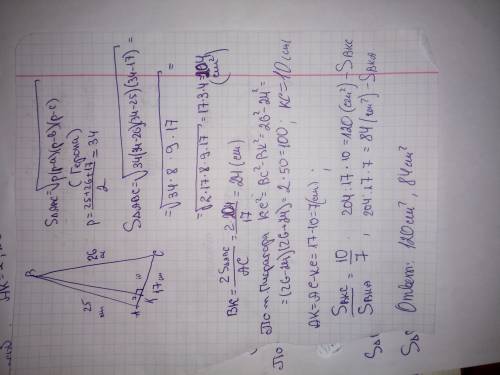 S∆ABC=√p(p-a)(p-b)(p-c)
(Герона)
p=25+26+17/2=34
S∆ABC=√34(34-26)(34-25)(34-17)=
=√34·8·9·17=
=√2·17·8·9·17=17·3·4=204
(cm²)
B
25
cm
26
cm
A
K
17
C
BK=2S∆ABC/AC=2·204/17=24(cm)
По т. Пифагора KC²=BC²-BK²=26²-24²=
=(26-24)(26+24)=2·50=100; KC=10cm
AK=AC-KC=17-10=7(cm);
S BKC/S BKA=10/7; 204:17·10=120(cm²)-S BKC
204:17·7=84(cm²)-S BKA
Ответ: 120cm², 84cm²